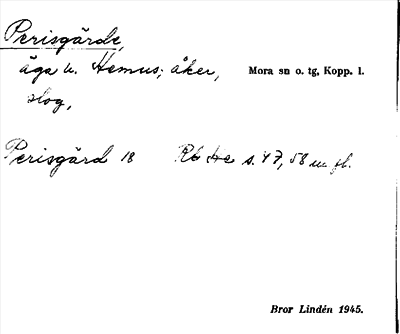 Perisgärde,
äga u. Hemus; åker, Mora sn o. tg, Kopp. l.
slog,
Perisgård 18 Rb He s. 47, 58 m fl.
Bror Lindén 1945.